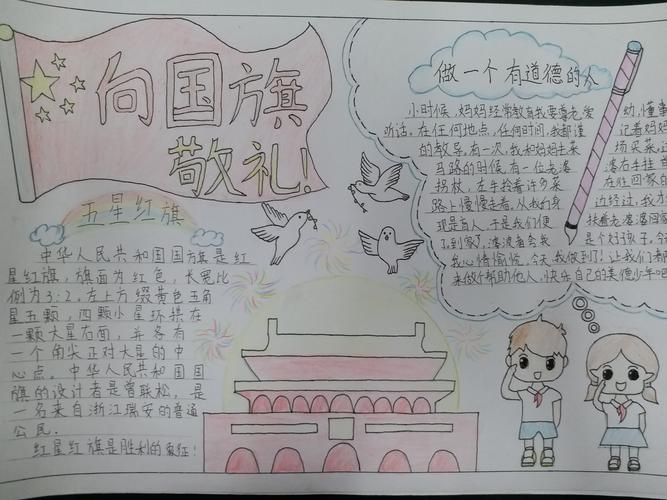 向国旗
敬礼!
五星红旗
中华人民共和国国旗是红
星红旗，旗面为红色，长宽比
例为3:2。左上方缀黄色五角
星五颗，四颗小星环拱在
一颗大星右面，并各有
一个角尖正对大星的中
心点。中华人民共和国国
旗的设计者是曾联松，是
一名来自浙江瑞安的普通
公民。
红星红旗是胜利的象征!
做一个有道德的人
小时候，妈妈经常教育我要尊老爱幼，懂事
听话。在任何地点，任何时间，我都谨记着妈妈
的教导。有一次，我和妈妈去菜场买菜，过
马路的时候，有一位老婆婆右手拄
拐杖，左手拎着许多菜在胜回家的
路上慢慢走着，从我们身边经过，我
现是盲人，于是我们便扶着老婆婆回家
了到家了，婆婆夸我是个好孩子，今天
我心情愉悦，今天，我做到了!让我们都
来做个帮助他人，快乐自己的美德少年吧